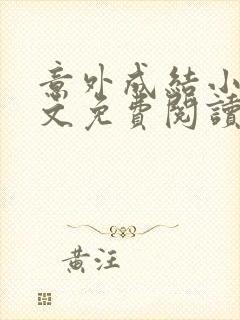 意外成結小
文免費閱讀
黃汪